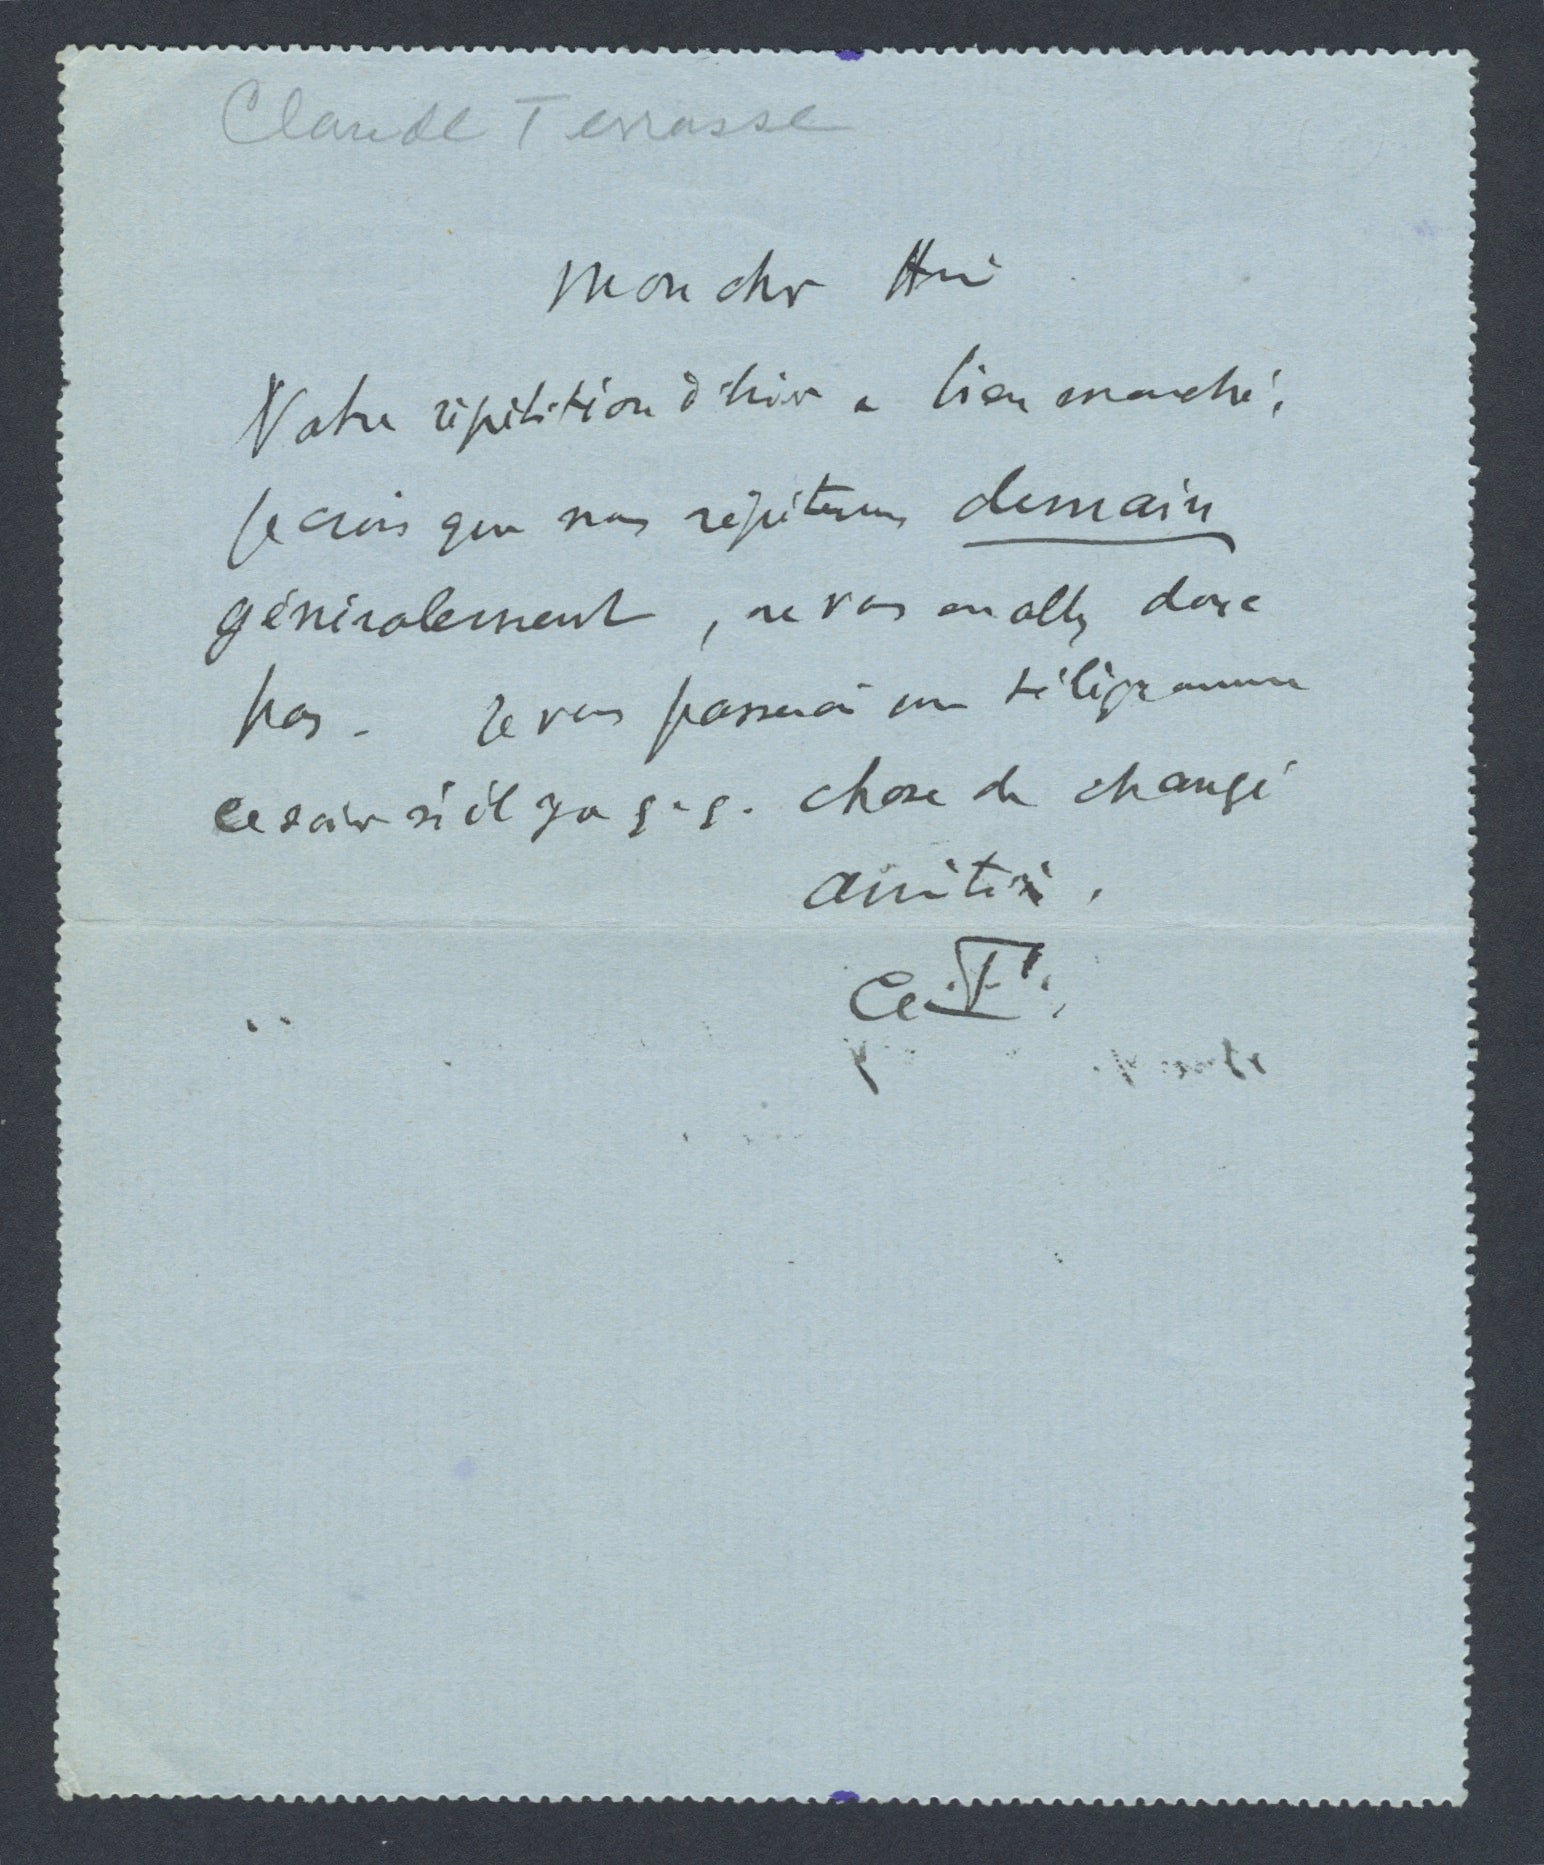 Claude Terrasse
Mon cher
Notre répétition d'hier a bien marché,
Je crois que nous répéterons demain
généralement, ne vous en allez donc
pas. Je vous passerai un télégramme
ce soir s'il y a q.q. chose de changé
amitié.